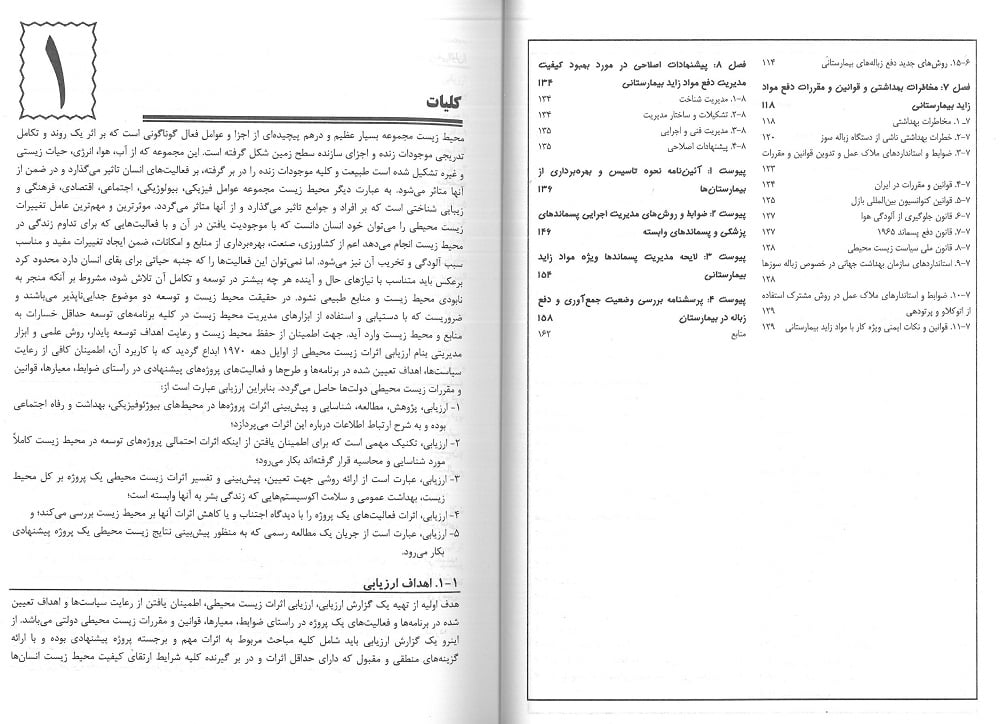 ۶-۱۵. روش‌های جدید دفع زباله‌های بیمارستانی ۱۱۴
فصل ۷: مخاطرات بهداشتی و قوانین و مقررات دفع مواد
زاید بیمارستانی ۱۱۸
۷-۱. مخاطرات بهداشتی ۱۱۸
۷-۲. خطرات بهداشتی ناشی از دستگاه زباله سوز ۱۲۰
۷-۳. ضوابط و استانداردهای ملاک عمل و تدوین قوانین و مقررات
۱۲۳
۷-۴. قوانین و مقررات در ایران ۱۲۴
۷-۵. قوانین کنوانسیون بین‌المللی بازل ۱۲۵
۷-۶. قانون جلوگیری از آلودگی هوا ۱۲۷
۷-۷. قانون دفع پسماند ۱۹۶۵ ۱۲۷
۷-۸. قانون ملی سیاست زیست محیطی ۱۲۸
۷-۹. استانداردهای سازمان بهداشت جهانی در خصوص زباله سوزها
۱۲۸
۷-۱۰. ضوابط و استاندارهای ملاک عمل در روش مشترک استفاده
از اتوکلاو و پرتودهی ۱۲۹
۷-۱۱. قوانین و نکات ایمنی ویژه کار با مواد زاید بیمارستانی ۱۲۹
فصل ۸: پیشنهادات اصلاحی در مورد بهبود کیفیت
مدیریت دفع مواد زاید بیمارستانی ۱۳۴
۸-۱. مدیریت شناخت ۱۳۴
۸-۲. تشکیلات و ساختار مدیریت ۱۳۴
۸-۳. مدیریت فنی و اجرایی ۱۳۵
۸-۴. پیشنهادات اصلاحی ۱۳۵
پیوست ۱: آئین‌نامه نحوه تاسیس و بهره‌برداری از
بیمارستان‌ها ۱۳۶
پیوست ۲: ضوابط و روش‌های مدیریت اجرایی پسماندهای
پزشکی و پسماندهای وابسته ۱۴۶
پیوست ۳: لایحه مدیریت پسماندها ویژه مواد زاید
بیمارستانی ۱۵۴
پیوست ۴: پرسشنامه بررسی وضعیت جمع‌آوری و دفع
زباله در بیمارستان ۱۵۸
منابع ۱۶۲
۱
کلیات
محیط زیست مجموعه بسیار عظیم و درهم پیچیده‌ای از اجزا و عوامل فعال گوناگونی است که بر اثر یک روند و تکامل
تدریجی موجودات زنده و اجزای سازنده سطح زمین شکل گرفته است. این مجموعه که از آب، هوا، انرژی، حیات زیستی
و غیره تشکیل شده است طبیعت و کلیه موجودات زنده را در بر گرفته، بر فعالیت‌های انسان تاثیر می‌گذارد و در ضمن از
آنها متاثر می‌شود. به عبارت دیگر محیط زیست مجموعه عوامل فیزیکی، بیولوژیکی، اجتماعی، اقتصادی، فرهنگی و
زیبایی شناختی است که بر افراد و جوامع تاثیر می‌گذارد و از آنها متاثر می‌گردد. موثرترین و مهم‌ترین عامل تغییرات
زیست محیطی را می‌توان خود انسان دانست که با موجودیت یافتن در آن و با فعالیت‌هایی که برای تداوم زندگی در
محیط زیست انجام می‌دهد اعم از کشاورزی، صنعت، بهره‌برداری از منابع و امکانات، ضمن ایجاد تغییرات مفید و مناسب
سبب آلودگی و تخریب آن نیز می‌شود. اما نمی‌توان این فعالیت‌ها را که جنبه حیاتی برای بقای انسان دارد محدود کرد
برعکس باید متناسب با نیازهای حال و آینده هر چه بیشتر در توسعه و تکامل آن تلاش شود، مشروط بر آنکه منجر به
نابودی محیط زیست و منابع طبیعی نشود. در حقیقت محیط زیست و توسعه دو موضوع جدایی‌ناپذیر می‌باشند و
ضروریست که با دستیابی و استفاده از ابزارهای مدیریت محیط زیست در کلیه برنامه‌های توسعه حداقل خسارات به
منابع و محیط زیست وارد آید. جهت اطمینان از حفظ محیط زیست و رعایت اهداف توسعه پایدار، روش علمی و ابزار
مدیریتی بنام ارزیابی اثرات زیست محیطی از اوایل دهه ۱۹۷۰ ابداع گردید که با کاربرد آن، اطمینان کافی از رعایت
سیاست‌ها، اهداف تعیین شده در برنامه‌ها و طرح‌ها و فعالیت‌های پروژه‌های پیشنهادی در راستای ضوابط، معیارها، قوانین
و مقررات زیست محیطی دولت‌ها حاصل می‌گردد. بنابراین ارزیابی عبارت است از:
۱- ارزیابی، پژوهش، مطالعه، شناسایی و پیش‌بینی اثرات پروژه‌ها در محیط‌های بیوژئوفیزیکی، بهداشت و رفاه اجتماعی
بوده و به شرح ارتباط اطلاعات درباره این اثرات می‌پردازد؛
۲- ارزیابی، تکنیک مهمی است که برای اطمینان یافتن از اینکه اثرات احتمالی پروژه‌های توسعه در محیط زیست کاملاً
مورد شناسایی و محاسبه قرار گرفته‌اند بکار می‌رود؛
۳- ارزیابی، عبارت است از ارائه روشی جهت تعیین، پیش‌بینی و تفسیر اثرات زیست محیطی یک پروژه بر کل محیط
زیست، بهداشت عمومی و سلامت اکوسیستم‌هایی که زندگی بشر به آنها وابسته است؛
۴- ارزیابی، اثرات فعالیت‌های یک پروژه را با دیدگاه اجتناب و یا کاهش اثرات آنها بر محیط زیست بررسی می‌کند؛ و
۵- ارزیابی، عبارت است از جریان یک مطالعه رسمی که به منظور پیش‌بینی نتایج زیست محیطی یک پروژه پیشنهادی
بکار می‌رود.
۱-۱. اهداف ارزیابی
هدف اولیه از تهیه یک گزارش ارزیابی، ارزیابی اثرات زیست محیطی، اطمینان یافتن از رعایت سیاست‌ها و اهداف تعیین
شده در برنامه‌ها و فعالیت‌های یک پروژه در راستای ضوابط، معیارها، قوانین و مقررات زیست محیطی دولتی می‌باشد. از
اینرو یک گزارش ارزیابی باید شامل کلیه مباحث مربوط به اثرات مهم و برجسته پروژه پیشنهادی بوده و با ارائه
گزینه‌های منطقی و مقبول که دارای حداقل اثرات و در بر گیرنده کلیه شرایط ارتقای کیفیت محیط زیست انسان‌ها